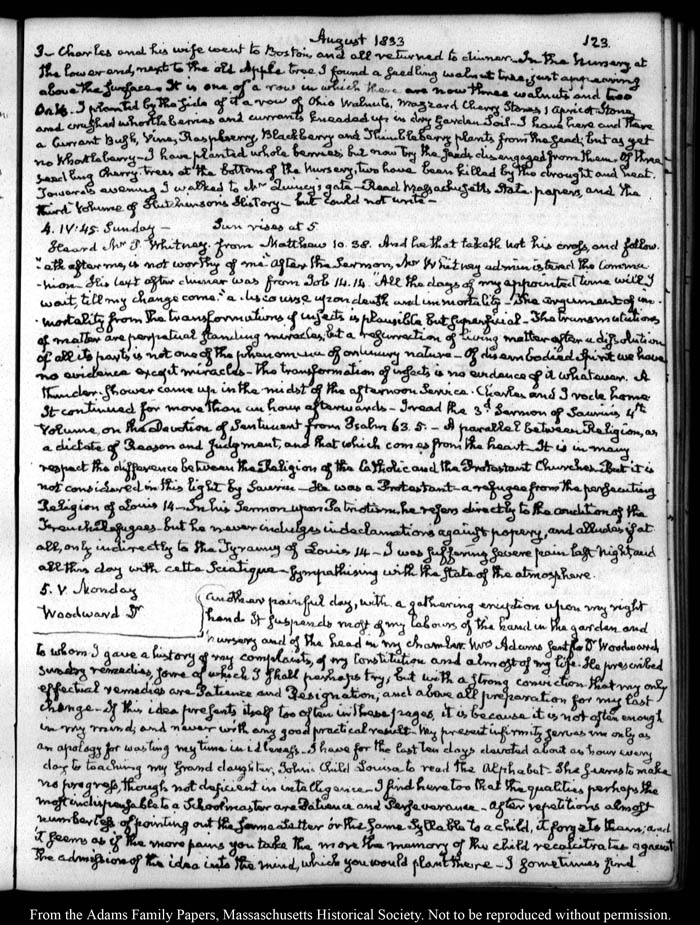 August 1833 123.
3— Charles and his wife went to Boston and all returned to dinner— In the Nursery at
the lower end, next to the old Apple tree I found a seedling walnut tree, just appearing
above the surface. It is one of a row in which there are now three walnuts and two
Oaks. I planted by the side of it a row of Ohio Walnuts, Mazzard Cherry Stones, 1 Apricot Stone
and crushed whortleberries and currants kneaded up in dry Garden Soil— I have here and there
a Currant Bush, Vine, Raspberry, Blackberry and Thimbleberry plants from the seed; but as yet
no Whortleberry— I have planted whole berries but now try the seeds disengaged from them. Of three
seedling Cherry trees at the bottom of the Nursery, two have been killed by the drought and heat.
Towards evening I walked to Mr Quincy's gate— Read Massachusetts State papers, and the
third Volume of Hutchinson's History— but could not write—
4. IV:45. Sunday— Sun rises at 5
Heard Mr P. Whitney, from Matthew 10. 38. And he that taketh not his cross, and follow-
"eth after me, is not worthy of me" after the Sermon, Mr Whitney administered the Commu-
-nion. His text after dinner was from Job 14. 14. All the days of my appointed time will I
wait, till my change come." a discourse upon death and immortality— The argument of im-
-mortality from the transformations of insects is plausible but superficial— The transmutations
of matter are perpetual standing miracles, but a resurrection of living matter after a dissolution
of all its parts is not one of the phenomena of ordinary nature— Of disembodied spirit we have
no evidence except miracles— The transformation of insects is no evidence of it whatever. A
thunder-shower came up in the midst of the afternoon Service. Charles and I rode home.
It continued for more than an hour afterwards— I read the 3d Sermon of Saurin's 4th
Volume, on the Devotion of Sentiment from Psalm 63. 5.— A parallel between Religion, as
a dictate of Reason and Judgment, and that which comes from the heart— It is in many
respects the difference between the Religion of the Catholic and the Protestant Churches. But it is
not considered in this light by Saurin— He was a Protestant— a refugee from the persecuting
Religion of Louis 14— In his Sermon upon Patriotism, he refers directly to the condition of the
French Refugees— but he never indulges in declamations against popery, and alludes if at
all, only indirectly to the Tyranny of Louis 14— I was suffering severe pain last Night, and
all this day with cette Sciatique— Sympathising with the state of the atmosphere.
5. V. Monday
Woodward Dr
Another painful day, with a gathering eruption upon my right
hand. It suspends most of my labours of the hand in the garden and
nursery and of the head in my chamber. Mrs Adams sent for Dr Woodward
to whom I gave a history of my complaints, of my Constitution and almost of my life. He prescribed
sundry remedies, some of which I shall perhaps try, but with a strong conviction that my only
effectual remedies are Patience and Resignation, and above all preparation for my last
change— If this idea presents itself too often in these pages, it is because it is not often enough
in my mind; and never with any good practical result— My present infirmity serves me only as
an apology for wasting my time in idleness— I have for the last ten days devoted about an hour every
day to teaching my Grand daughter, John's Child Louisa to read the Alphabet— She seems to make
no progress, though not deficient in intelligence— I find here too that the qualities perhaps the
most indispensable to a Schoolmaster are Patience and Perseverance— after repetitions almost
numberless of pointing out the same Letter or the same Syllable to a child, it forgets them; and
it seems as if the more pains you take the more the memory of the child recalcitrates against
the admission of the idea into the mind, which you would plant there— I sometimes find
From the Adams Family Papers, Massachusetts Historical Society. Not to be reproduced without permission.